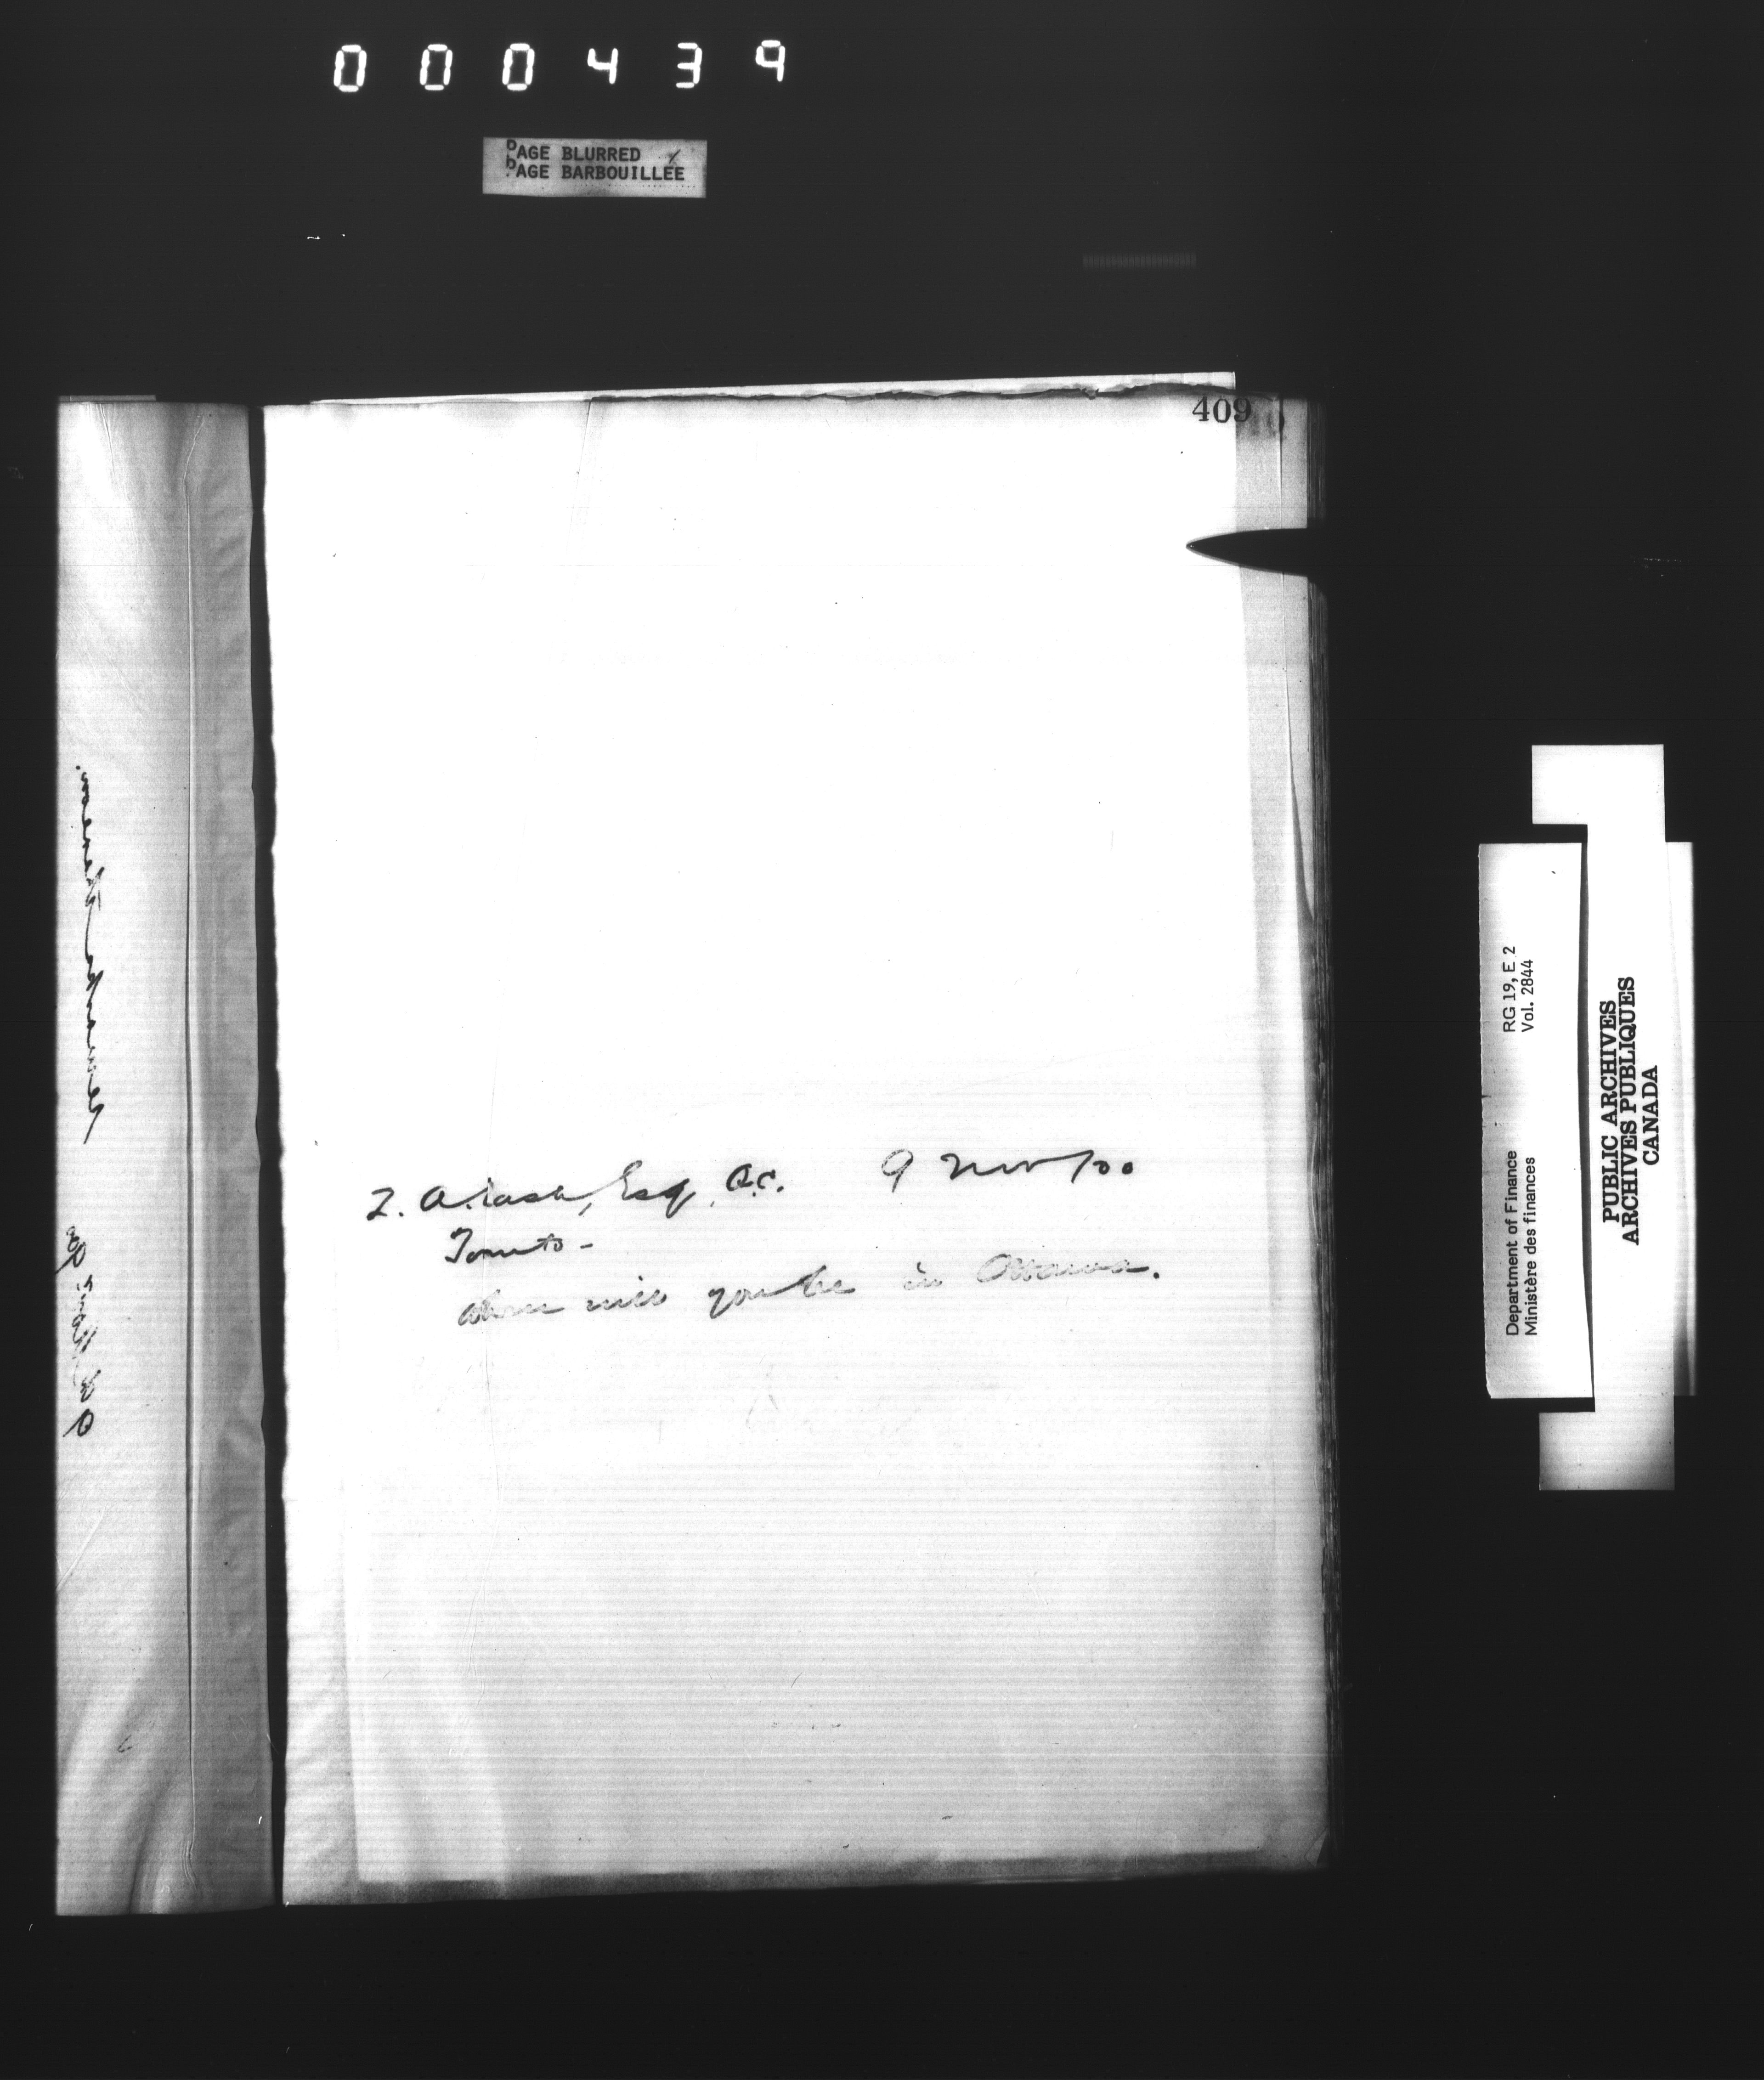 000439
PAGE BLURRED
PAGE BARBOUILLÉE
409
Z. A. Lash, Esq, Q.C. 9 Nov/00
Toronto -
When will you be in Ottawa.
Department of Finance RG 19, E 2
Ministère des finances Vol. 2844
PUBLIC ARCHIVES
ARCHIVES PUBLIQUES
CANADA